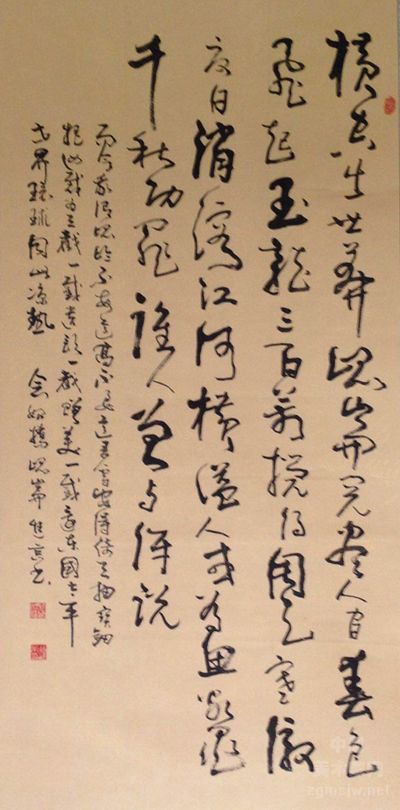 横空出世莽崑崙阅尽人间春色
飞起玉龙三百万搅得周天寒彻
夏日消溶江河横溢人或为鱼鳖
千秋功罪谁人曾与评说
而今我谓崑崙不要这高不要这多雪安得倚天抽宝剑
把汝裁为三截一截遗欧一截赠美一截还东国太平
世界环球同此凉热 念奴娇崑崙 书
zgmsjw.net